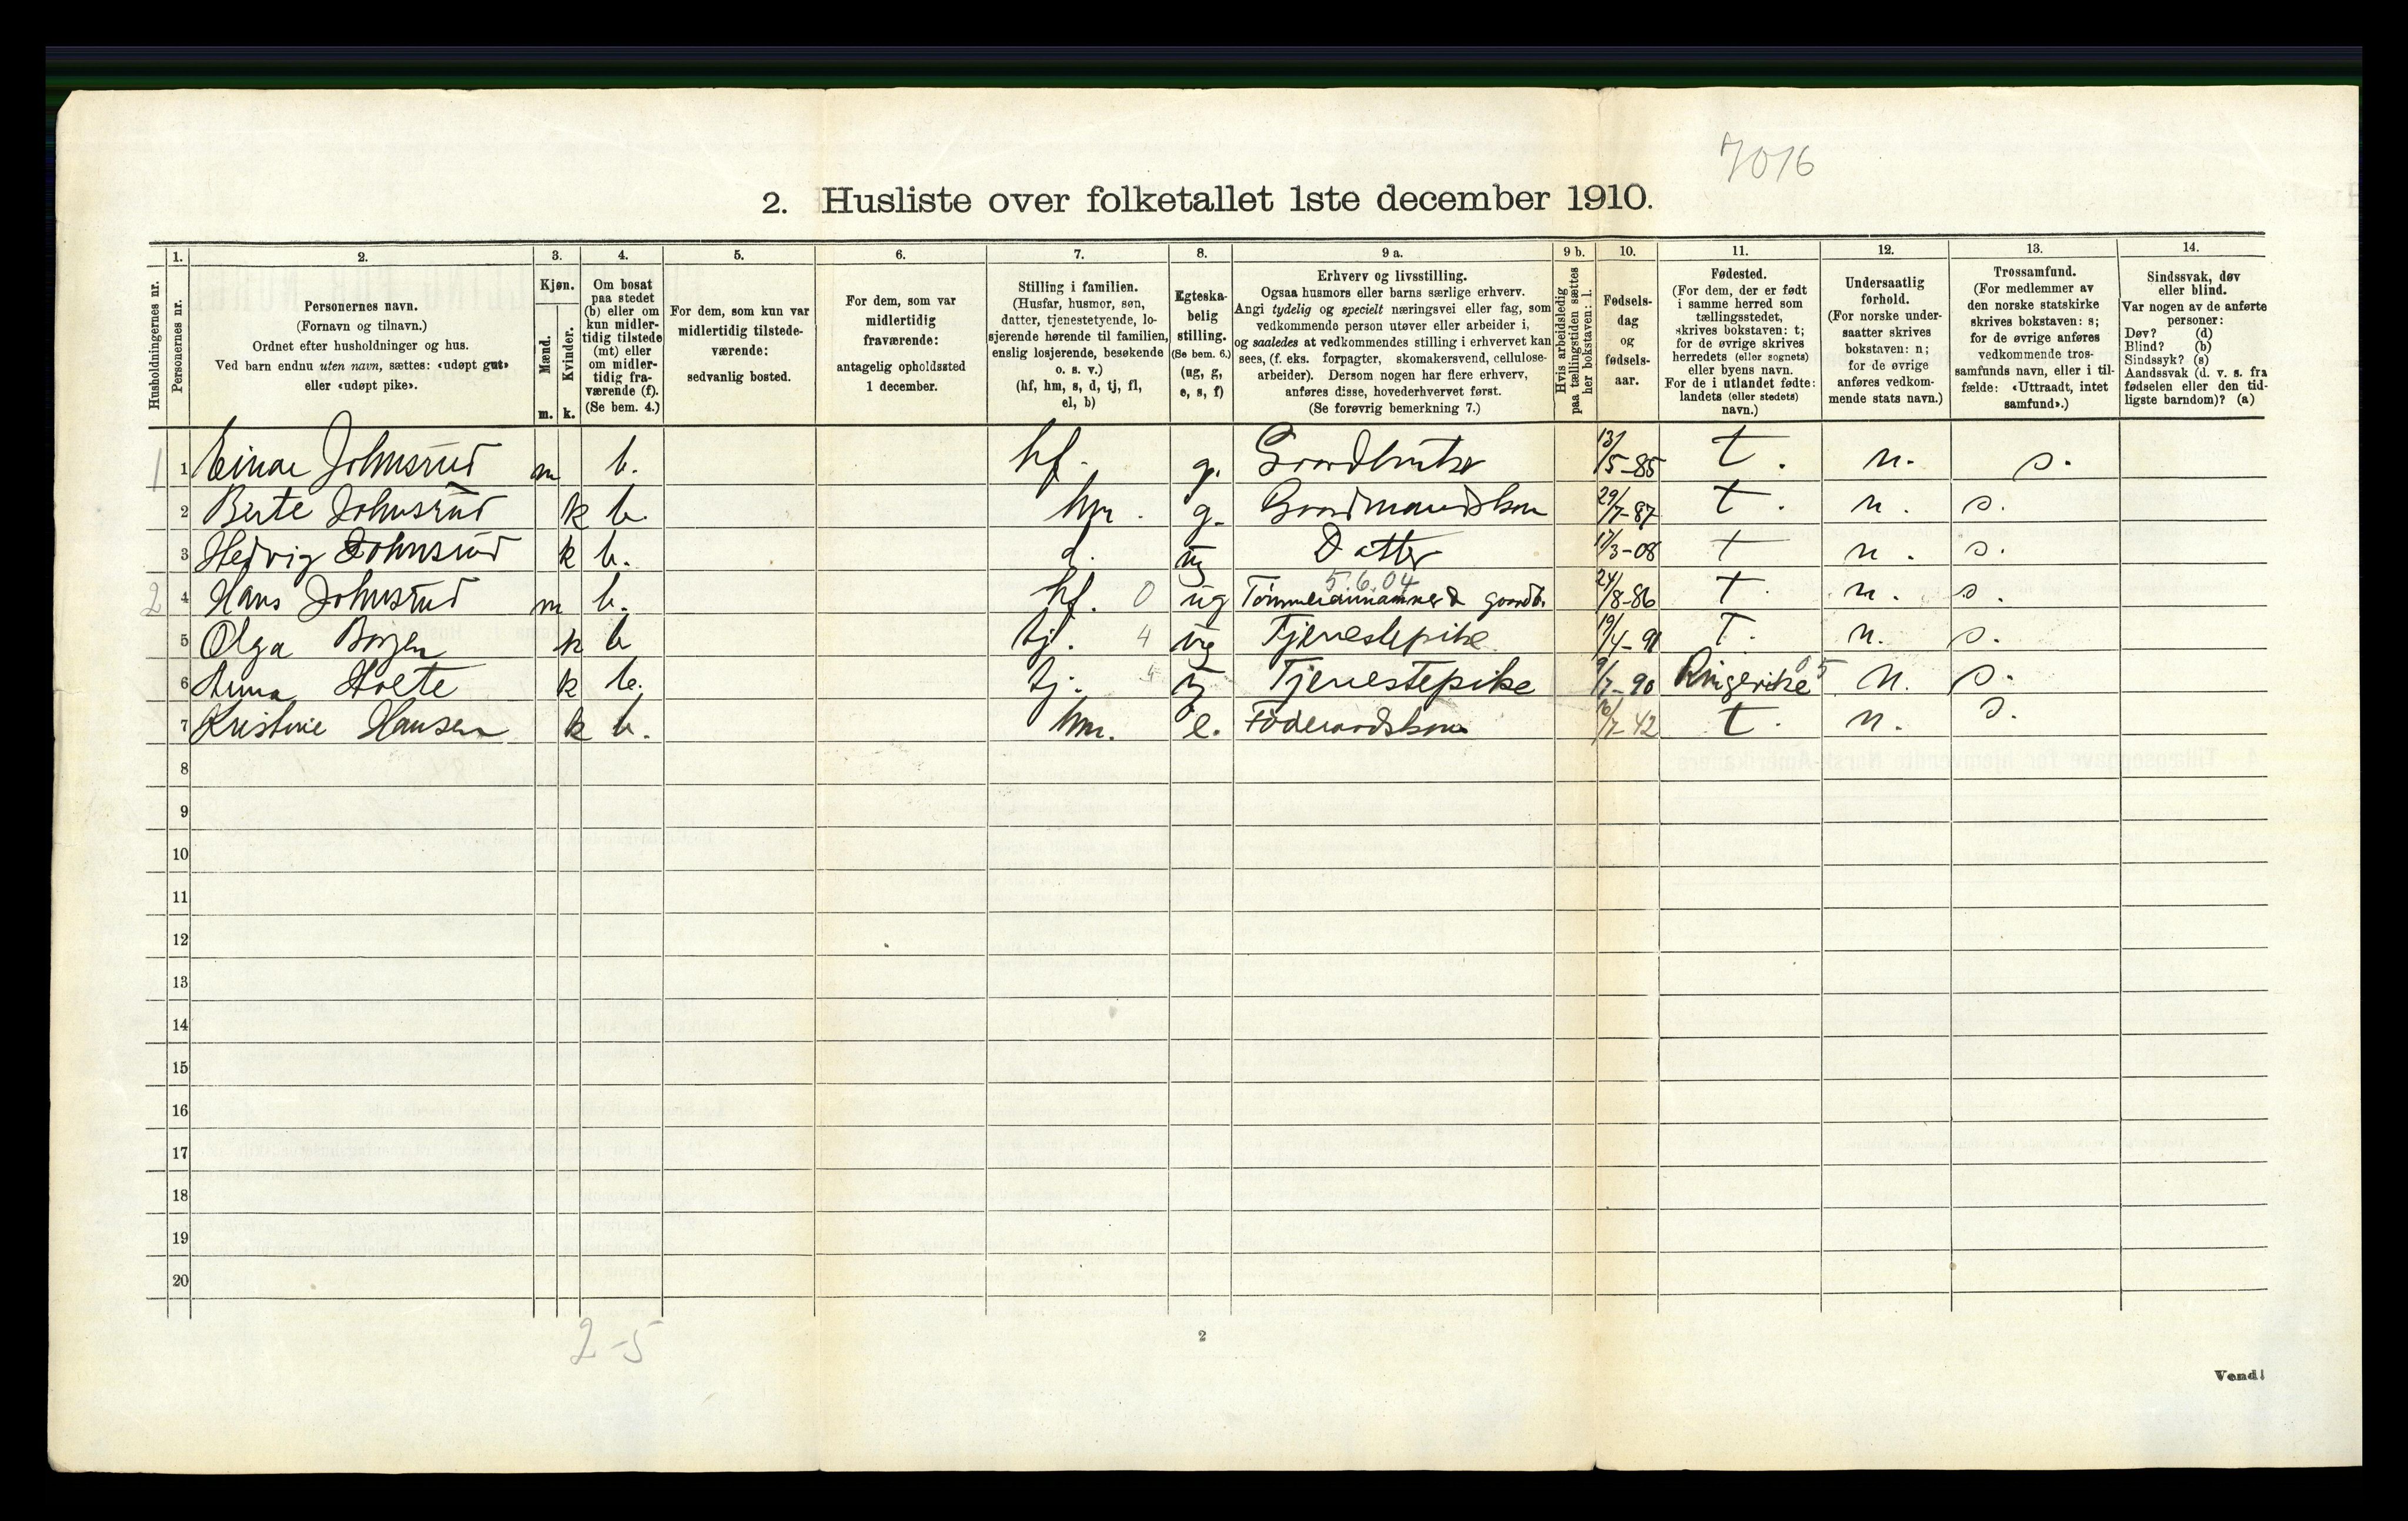 7016
2. Husliste over folketallet 1ste december 1910.
Husholdningernes nr.
1.
Personernes nr.
2.
Personernes navn.
(Fornavn og tilnavn.)
Ordnet efter husholdninger og hus.
Ved barn endnu uten navn, sættes: «udøpt gut»
eller «udøpt pike».
3.
Kjøn.
Mænd.
Kvinder.
m. k.
4.
Om bosat
paa stedet
(b) eller om
kun midler-
tidig tilstede
(mt) eller
om midler-
tidig fra-
værende (f).
(Se bem. 4.)
5.
For dem, som kun var
midlertidig tilstede-
værende:
sedvanlig bosted.
6.
For dem, som var
midlertidig
fraværende:
antagelig opholdssted
1 december.
7.
Stilling i familien.
(Husfar, husmor, søn,
datter, tjenestetyende, lo-
sjerende hørende til familien,
enslig losjerende, besøkende
o. s. v.)
(hf, hm, s, d, tj, fl,
el, b)
8.
Egteska-
belig
stilling.
(Se bem. 6.)
(ug, g,
e, s, f)
9 a.
Erhverv og livsstilling.
Ogsaa husmors eller barns særlige erhverv.
Angi tydelig og specielt næringsvei eller fag, som
vedkommende person utøver eller arbeider i,
og saaledes at vedkommendes stilling i erhvervet kan
sees, (f. eks. forpagter, skomakersvend, cellulose-
arbeider). Dersom nogen har flere erhverv,
anføres disse, hovederhvervet først.
(Se forøvrig bemerkning 7.)
9 b.
Hvis arbeidsledig
paa tællingstiden sættes
her bokstaven: l.
10.
Fødsels-
dag
og
fødsels-
aar.
11.
Fødested.
(For dem, der er født
i samme herred som
tællingsstedet,
skrives bokstaven: t;
for de øvrige skrives
herredets (eller sognets)
eller byens navn.
For de i utlandet fødte:
landets (eller stedets)
navn.)
12.
Undersaatlig
forhold.
(For norske under-
saatter skrives
bokstaven: n;
for de øvrige
anføres vedkom-
mende stats navn.)
13.
Trossamfund.
(For medlemmer av
den norske statskirke
skrives bokstaven: s;
for de øvrige anføres
vedkommende tros-
samfunds navn, eller i til-
fælde: «Uttraadt, intet
samfund».)
14.
Sindssvak, døv
eller blind.
Var nogen av de anførte
personer:
Døv? (d)
Blind? (b)
Sindssyk? (s)
Aandssvak (d. v. s. fra
fødselen eller den tid-
ligste barndom)? (a)
1 1 Einar Johnsrud m b. hf. g. Gaardbruker 13/5-85 t. n. s.
2 Berte Johnsrud k b. hm. g. Gaardmandskone 29/7-87 t. n. s.
3 Hedvig Johnsrud k b. d. ug Datter 17/3-08 t n. s.
5.6.04
2 4 Hans Johnsrud m b. hf. 0 ug gaardb. 24/8-86 t. n. s.
5 Olga k b tj. 4 ug Tjenestepike 19/4-91 T. n. s.
6 Anna k b. tj. ug Tjenestepike 9/7-90 Ringerike 05 n. s.
7 Kristine Hansen k b. hm. e. Föderaadskone 16/7-42 t. n. s.
8
9
10
11
12
13
14
15
16
17
18
19
20
2-5
2
Vend!